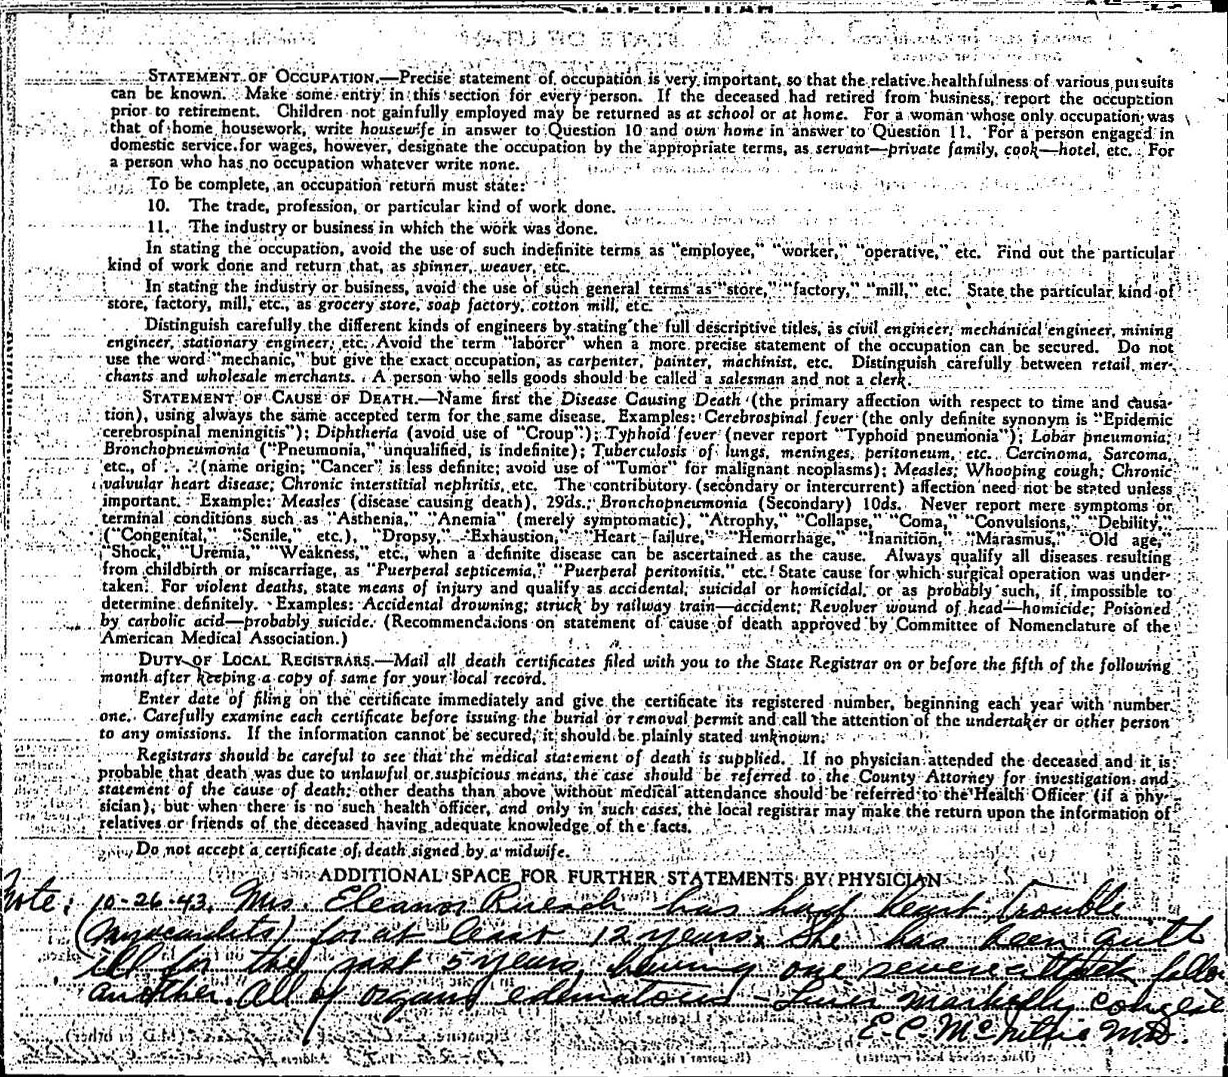 STATE OF UTAH
STATEMENT OF OCCUPATION.—Precise statement of occupation is very important, so that the relative healthfulness of various pursuits
can be known. Make some entry in this section for every person. If the deceased had retired from business, report the occupation
prior to retirement. Children not gainfully employed may be returned as at school or at home. For a woman whose only occupation was
that of home housework, write housewife in answer to Question 10 and own home in answer to Question 11. For a person engaged in
domestic service for wages, however, designate the occupation by the appropriate terms, as servant—private family, cook—hotel, etc. For
a person who has no occupation whatever write none.
To be complete, an occupation return must state:
10. The trade, profession, or particular kind of work done.
11. The industry or business in which the work was done.
In stating the occupation, avoid the use of such indefinite terms as "employee," "worker," "operative," etc. Find out the particular
kind of work done and return that, as spinner, weaver, etc.
In stating the industry or business, avoid the use of such general terms as "store," "factory," "mill," etc. State the particular kind of
store, factory, mill, etc., as grocery store, soap factory, cotton mill, etc.
Distinguish carefully the different kinds of engineers by stating the full descriptive titles, as civil engineer, mechanical engineer, mining
engineer, stationary engineer, etc. Avoid the term "laborer" when a more precise statement of the occupation can be secured. Do not
use the word "mechanic," but give the exact occupation, as carpenter, painter, machinist, etc. Distinguish carefully between retail mer-
chants and wholesale merchants. A person who sells goods should be called a salesman and not a clerk.
STATEMENT OF CAUSE OF DEATH.—Name first the Disease Causing Death (the primary affection with respect to time and causa-
tion), using always the same accepted term for the same disease. Examples: Cerebrospinal fever (the only definite synonym is "Epidemic
cerebrospinal meningitis"); Diphtheria (avoid use of "Croup"); Typhoid fever (never report "Typhoid pneumonia"); Lobar pneumonia;
Bronchopneumonia ("Pneumonia," unqualified, is indefinite); Tuberculosis of lungs, meninges, peritoneum, etc. Carcinoma, Sarcoma,
etc., of . . . (name origin; "Cancer" is less definite; avoid use of "Tumor" for malignant neoplasms); Measles; Whooping cough; Chronic
valvular heart disease; Chronic interstitial nephritis, etc. The contributory (secondary or intercurrent) affection need not be stated unless
important. Example: Measles (disease causing death), 29ds.; Bronchopneumonia (Secondary) 10ds. Never report mere symptoms or
terminal conditions such as "Asthenia," "Anemia" (merely symptomatic), "Atrophy," "Collapse," "Coma," "Convulsions," "Debility,"
("Congenital," "Senile," etc.), "Dropsy," "Exhaustion," "Heart failure," "Hemorrhage," "Inanition," "Marasmus," "Old age,"
"Shock," "Uremia," "Weakness," etc., when a definite disease can be ascertained as the cause. Always qualify all diseases resulting
from childbirth or miscarriage, as "Puerperal septicemia," "Puerperal peritonitis," etc. State cause for which surgical operation was under-
taken. For violent deaths, state means of injury and qualify as accidental, suicidal or homicidal, or as probably such, if impossible to
determine definitely. Examples: Accidental drowning; struck by railway train—accident; Revolver wound of head—homicide; Poisoned
by carbolic acid—probably suicide. (Recommendations on statement of cause of death approved by Committee of Nomenclature of the
American Medical Association.)
DUTY OF LOCAL REGISTRARS.—Mail all death certificates filed with you to the State Registrar on or before the fifth of the following
month after keeping a copy of same for your local record.
Enter date of filing on the certificate immediately and give the certificate its registered number, beginning each year with number
one. Carefully examine each certificate before issuing the burial or removal permit and call the attention of the undertaker or other person
to any omissions. If the information cannot be secured, it should be plainly stated unknown.
Registrars should be careful to see that the medical statement of death is supplied. If no physician attended the deceased and it is
probable that death was due to unlawful or suspicious means, the case should be referred to the County Attorney for investigation and
statement of the cause of death; other deaths than above without medical attendance should be referred to the Health Officer (if a phy-
sician), but when there is no such health officer, and only in such cases, the local registrar may make the return upon the information of
relatives or friends of the deceased having adequate knowledge of the facts.
Do not accept a certificate of death signed by a midwife.
ADDITIONAL SPACE FOR FURTHER STATEMENTS BY PHYSICIAN
Note: 10-26-43. Mrs. Eleanor Ruesch has had heart trouble
(Myocarditis) for at least 12 years. She has been quite
ill for the past 5 years, having one severe attack follow
another. All of organs edematous - Liver markedly congest
E.C. M.D.